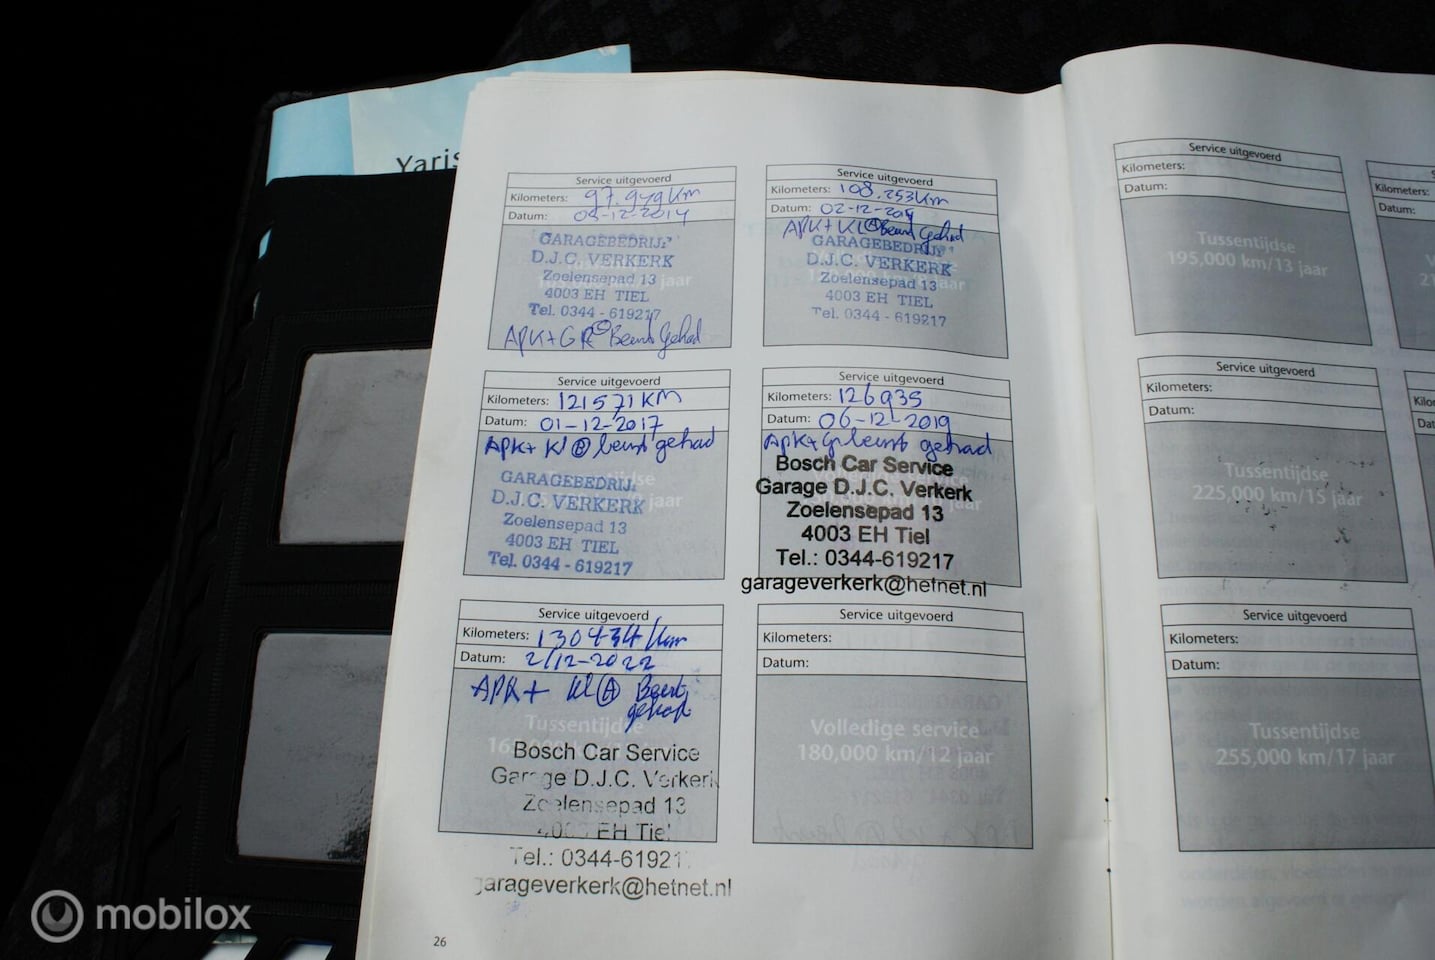 Yaris
Service uitgevoerd
Kilometers: 97.949 km
Datum: -12-2014
GARAGEBEDRIJF
D.J.C. VERKERK
Zoelensepad 13
4003 EH TIEL
Tel. 0344 - 619217
APK+GR Beurt Gehad
Service uitgevoerd
Kilometers: 108.253 km
Datum: 02-12-
APK+Kl Beurt Gehad
GARAGEBEDRIJF
D.J.C. VERKERK
Zoelensepad 13
4003 EH TIEL
Tel. 0344 - 619217
Service uitgevoerd
Kilometers: 121571 KM
Datum: 01-12-2017
APK+ Kl beurt gehad
Tussentijdse
GARAGEBEDRIJF
D.J.C. VERKERK
Zoelensepad 13
4003 EH TIEL
Tel. 0344 - 619217
Service uitgevoerd
Kilometers: 126935
Datum: 06-12-2019
APK+Gr beurt gehad
Bosch Car Service
Garage D.J.C. Verkerk
Zoelensepad 13
4003 EH Tiel
Tel.: 0344-619217
garageverkerk@hetnet.nl
Service uitgevoerd
Kilometers: 130434 km
Datum: 2/12-2022
APK+ Kl Ⓐ Beurt
gehad
Tussentijdse
Bosch Car Service
Garage D.J.C. Verkerk
Zoelensepad 13
4003 EH Tiel
Tel.: 0344-619217
garageverkerk@hetnet.nl
Service uitgevoerd
Kilometers:
Datum:
Volledige service
180,000 km/12 jaar
26
Service uitgevoerd
Kilometers:
Datum:
Tussentijdse
195,000 km/13 jaar
Kilometers:
Datum:
Service uitgevoerd
Kilometers:
Datum:
Tussentijdse
225,000 km/15 jaar
Service uitgevoerd
Kilometers:
Datum:
Tussentijdse
255,000 km/17 jaar
mobilox